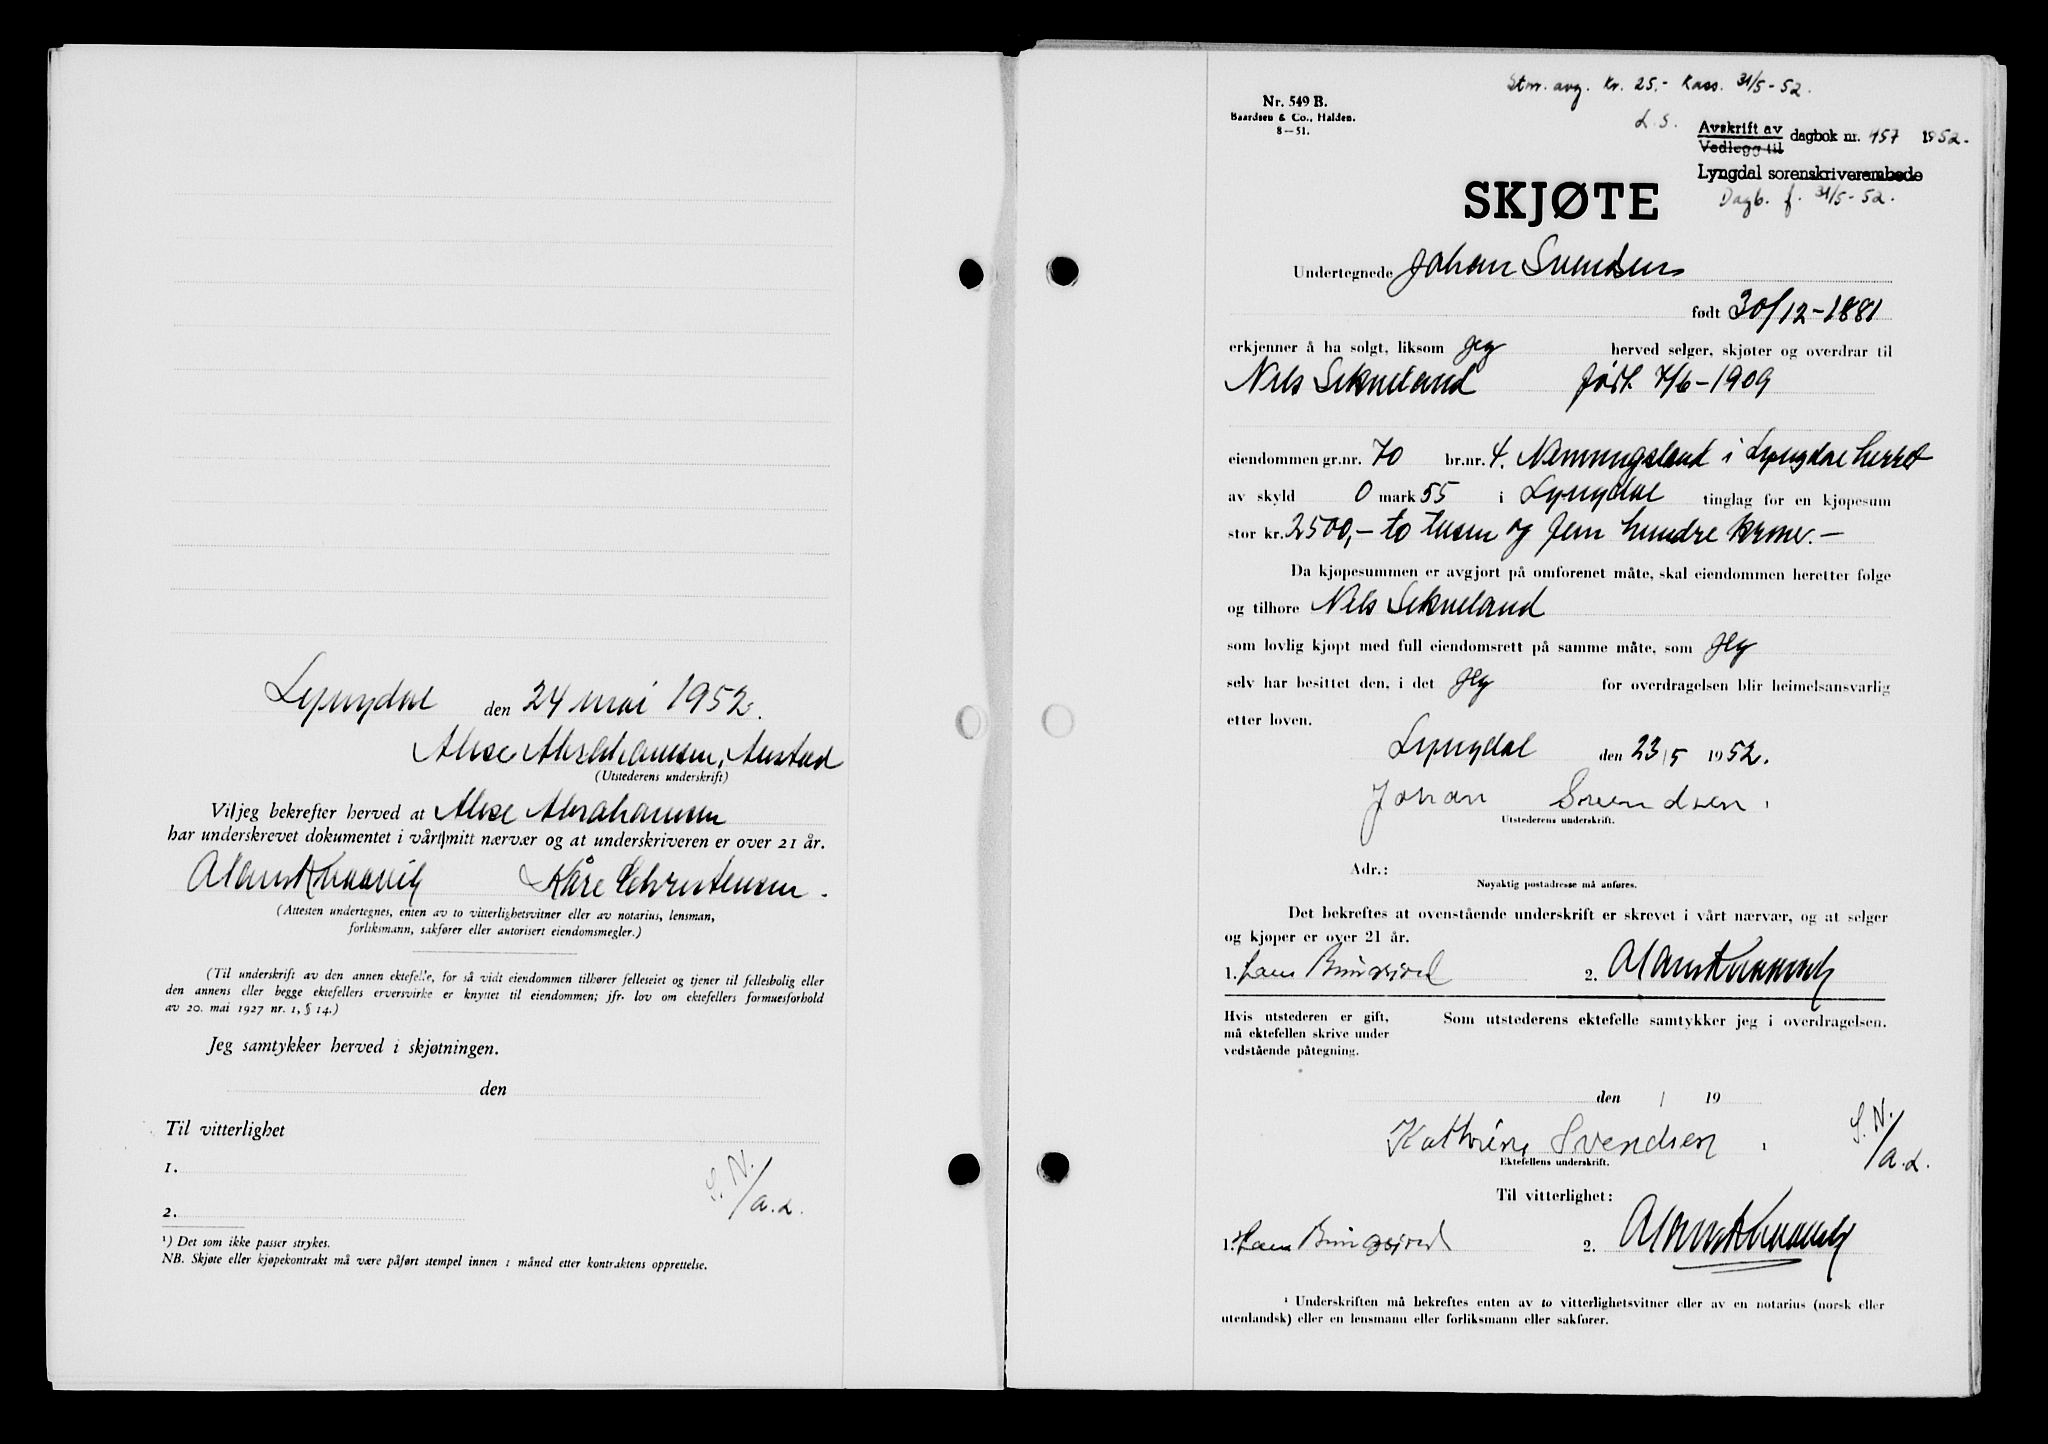 Lyngdal den 24 mai 1952.
Alise Abrahamsen, Austad
(Utstederens underskrift)
Vi/jeg bekrefter herved at Alise Abrahamsen
har underskrevet dokumentet i vårt/mitt nærvær og at underskriveren er over 21 år.
Kåre Christensen.
(Attesten undertegnes, enten av to vitterlighetsvitner eller av notarius, lensman,
forliksmann, sakfører eller autorisert eiendomsmegler.)
(Til underskrift av den annen ektefelle, for så vidt eiendommen tilhører felleseiet og tjener til fellesbolig eller
den annens eller begge ektefellers erversvirke er knyttet til eiendommen; jfr. lov om ektefellers formuesforhold
av 20. mai 1927 nr. 1, § 14.)
Jeg samtykker herved i skjøtningen.
den
Til vitterlighet
1.
2.
S. N.
/a.L.
¹) Det som ikke passer strykes.
NB. Skjøte eller kjøpekontrakt må være påført stempel innen 1 måned etter kontraktens opprettelse.
Nr. 549 B.
Baardsen & Co., Halden.
8—51.
Stm. avg. kr. 25.- Kass. 31/5-52.
L.S.
Avskrift av
Vedlegg til
dagbok nr. 957 1952.
Lyngdal sorenskriverembede
Dagb. f. 31/5-52.
SKJØTE
Undertegnede Johan Svendsen
født 30/12-1881
erkjenner å ha solgt, liksom jeg herved selger, skjøter og overdrar til
Nils Sekneland født 7/6-1909
eiendommen gr.nr. 70 br.nr. 4. i Lyngdal herred
av skyld 0 mark 55 i Lyngdal tinglag for en kjøpesum
stor kr. 2500,- to tusen og fem hundre kroner.-
Da kjøpesummen er avgjort på omforenet måte, skal eiendommen heretter følge
og tilhøre Nils Sekneland
som lovlig kjøpt med full eiendomsrett på samme måte, som jeg
selv har besittet den, i det jeg for overdragelsen blir heimelsansvarlig
etter loven.
Lyngdal den 23/5 1952.
Johan Svendsen
Utstederens underskrift.
Adr.:
Nøyaktig postadresse må anføres.
Det bekreftes at ovenstående underskrift er skrevet i vårt nærvær, og at selger
og kjøper er over 21 år.
1. 2.
Hvis utstederen er gift,
må ektefellen skrive under
vedstående påtegning.
Som utstederens ektefelle samtykker jeg i overdragelsen.
den / 19
Kathrine Svendsen
Ektefellens underskrift.
S. N.
/a.L.
Til vitterlighet:
1. 2.
¹ Underskriften må bekreftes enten av to vitterlighetsvitner eller av en notarius (norsk eller
utenlandsk) eller en lensmann eller forliksmann eller sakfører.